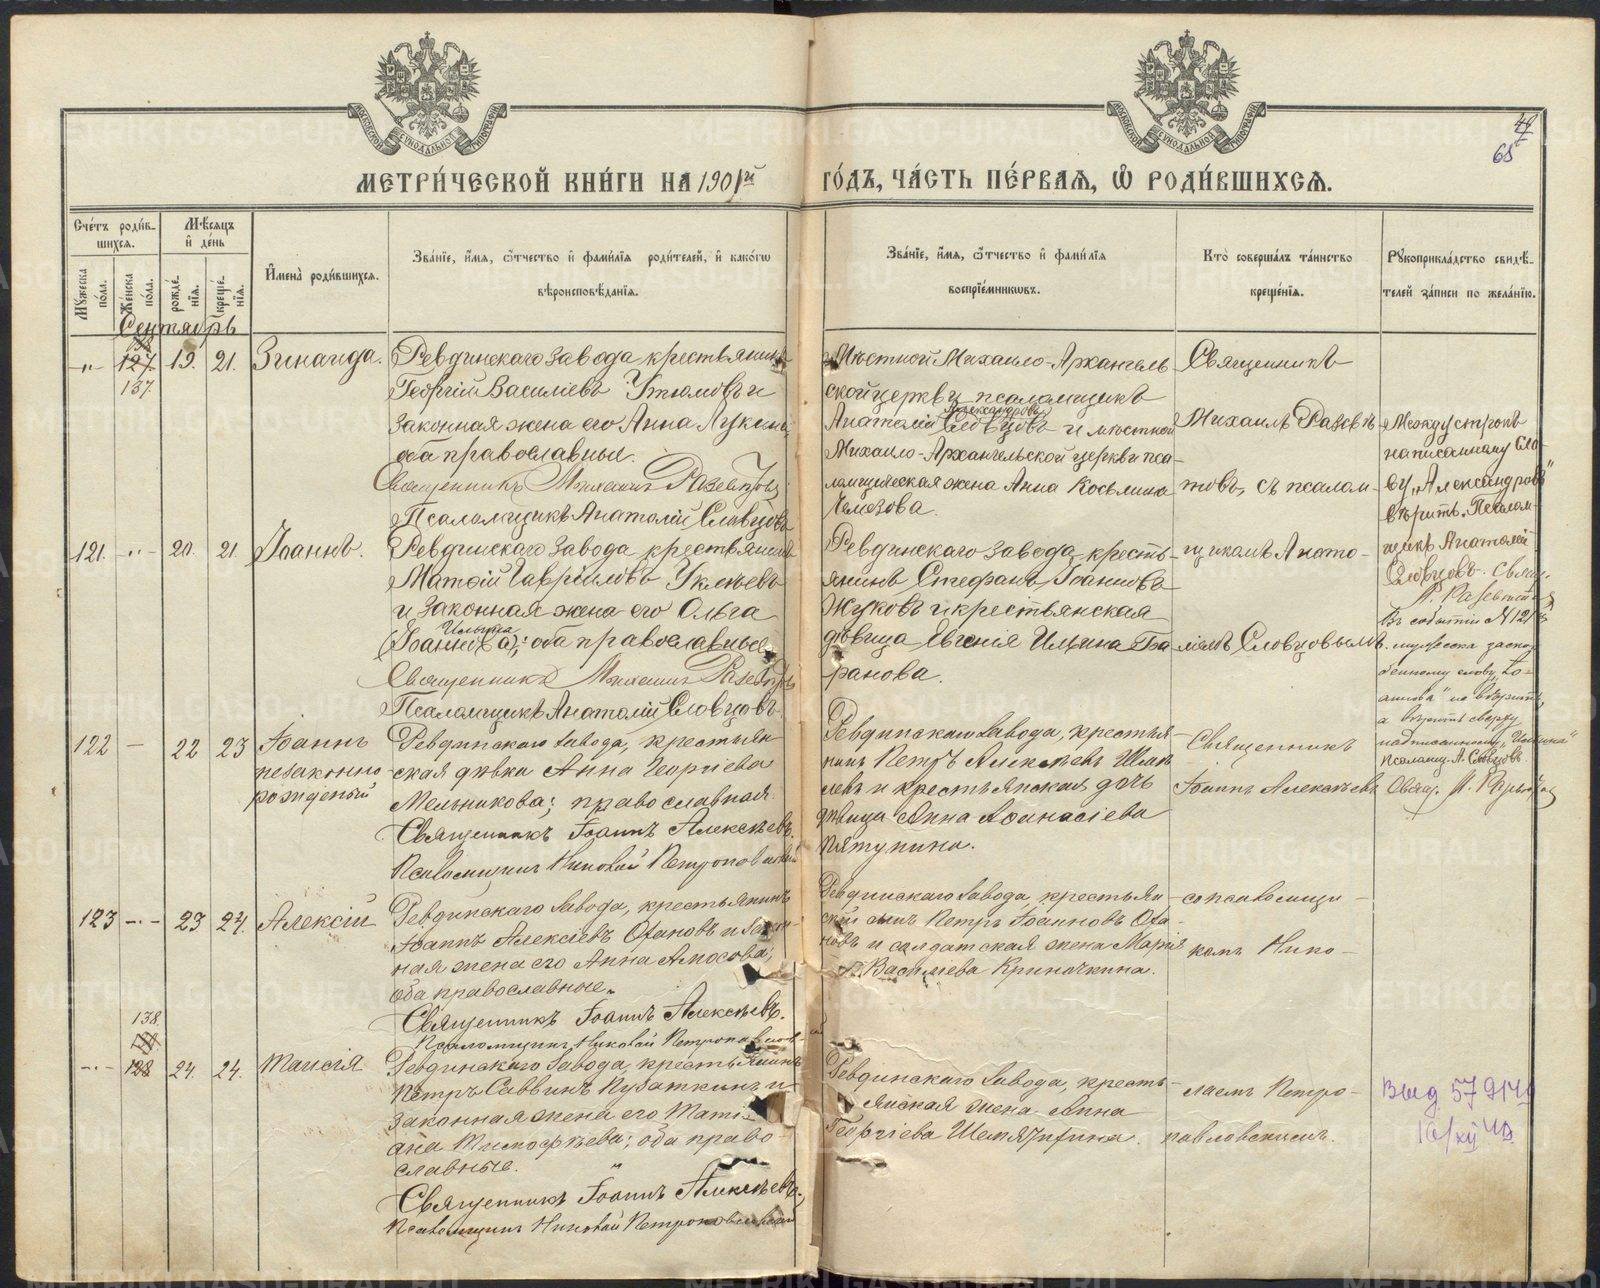 МЕТРИ́ЧЕСКОЙ КНИ́ГИ НА 1901й
ГО́ДЪ, ЧА́СТЬ ПЕ́РВАЯ, Ѡ РОДИ́ВШИХСЯ.
65
Сче́тъ роди́в-
шихся.
Мѣ́сяцъ
и де́нь
Мꙋ́жеска по́ла.
Же́нска по́ла.
рожде́-
нїя.
креще́-
нїя.
Имена̀ роди́вшихся.
Зва́нїе, и́мя, ѻ́тчество и фами́лїя роди́телей, и како́гѡ
вѣроисповѣ́данїя.
Зва́нїе, и́мя, ѻ́тчество и фами́лїя
воспрїе́мникѡвъ.
Кто̀ соверша́лъ та́инство
креще́нїя.
Рꙋкоприкла́дство свидѣ́-
телей за́писи по жела́нїю.
Сентябрь
127
137.
19. 21. Зинаида.
Ревдинскаго завода крестьянинъ
Георгій Василіевъ Утюмовъ и
законная жена его Анна Лукина,
оба православные.
Священникъ Михаилъ Разевитовъ
Псаломщикъ Анатолій Словцовъ
Мѣстной Михаило-Архангель
ской церкви псаломщикъ
Александровъ
Анатолій Словцовъ и мѣстной
Михаило-Архангельской церкви пса-
ломщическая жена Анна Косьмина
Чемезова.
Священникъ
Михаилъ
товъ, съ псалом-
Между строкъ
написанному сло-
ву „Александровъ"
вѣрить. Псалом-
щикъ Анатолій
Словцовъ. Свящ.
121. -"- 20. 21. Іоаннъ.
Ревдинскаго завода крестьянинъ
Матѳій Гавріиловъ Уклѣевъ
и законная жена его Ольга
Ильина
(Іоаннова); оба православные
Священникъ Михаилъ
Псаломщикъ Анатолій Словцовъ
Ревдинскаго завода кресть-
янинъ Стефанъ Іоанновъ
Жуковъ и крестьянская
дѣвица Евгенія Ильина Ба
ранова.
щикомъ Анато-
ліемъ Словцовымъ.
Въ событіи № 121й
мужеска заско-
бенному слову „Іо-
аннова" не вѣрить,
а вѣрить сверху
надписанному „Ильина"
Псаломщ. А. Словцовъ.
122 — 22 23 Іоаннъ
незаконно
рожденый
Ревдинскаго завода, крестьян-
ская дѣвка Анна Георгіева
Мельникова; православная.
Священникъ Іоаннъ Алексѣевъ.
Псаломщикъ Николай Петропавловскій
Ревдинскаго завода, крестья-
нинъ Петръ Алексѣевъ
левъ и крестьянская дочь
дѣвица Анна Аѳанасіева
Пятунина.
Священникъ
Іоаннъ Алексѣевъ
123 -"- 23 24. Алексій
Ревдинскаго завода, крестьянинъ
Іоаннъ Алексіевъ и закон-
ная жена его Анна Амосова;
оба православные.
Священникъ Іоаннъ Алексѣевъ.
Псаломщикъ Николай Петропавлов-
Ревдинскаго завода, крестьян-
скій сынъ Петръ Іоанновъ
новъ и солдатская жена Марія
Василіева Криночкина.
со псаломщи-
комъ Нико-
138
-"- 128 24. 24. Таисія
Ревдинскаго завода, крестьянинъ
Петръ Саввинъ Пузаткинъ и
законная жена его Тати-
ана Тимоѳѣева; оба право-
славные.
Священникъ Іоаннъ Алексѣевъ,
Псаломщикъ Николай Петропавловскій
Ревдинскаго завода, кресть-
янская жена Анна
Георгіева Шемятихина.
лаемъ Петро-
павловскимъ.